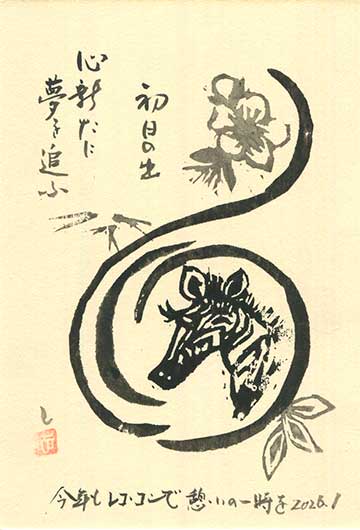 初日の出
心新たに
夢を追ふ
今年もレコ・コンで憩いの一時を2026.1